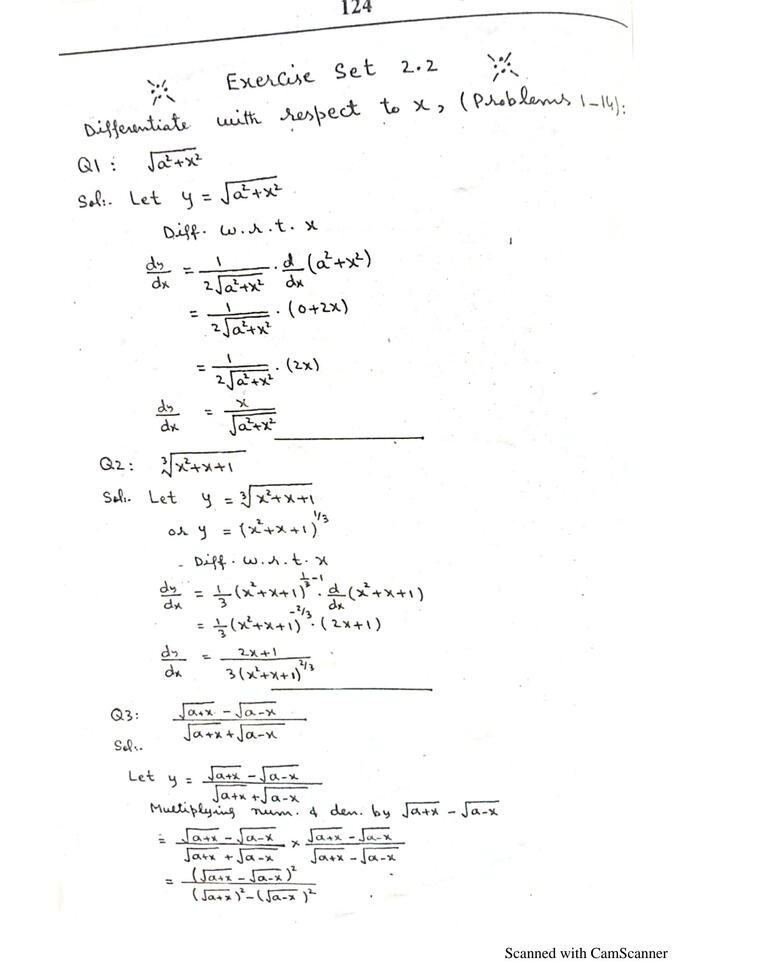 124
Exercise Set 2.2
Differentiate with respect to x, (Problems 1-14):
Q1: √(a²+x²)
Sol:. Let y = √(a²+x²)
Diff. w.r.t. x
dy/dx = 1/(2√(a²+x²)) · d/dx (a²+x²)
= 1/(2√(a²+x²)) · (0+2x)
= 1/(2√(a²+x²)) · (2x)
dy/dx = x/√(a²+x²)
Q2: ∛(x²+x+1)
Sol:. Let y = ∛(x²+x+1)
or y = (x²+x+1)^(1/3)
Diff. w.r.t. x
dy/dx = 1/3 (x²+x+1)^(1/3-1) · d/dx (x²+x+1)
= 1/3 (x²+x+1)^(-2/3) · (2x+1)
dy/dx = (2x+1)/(3(x²+x+1)^(2/3))
Q3: (√(a+x) - √(a-x))/(√(a+x) + √(a-x))
Sol:.
Let y = (√(a+x) - √(a-x))/(√(a+x) + √(a-x))
Multiplying num. & den. by √(a+x) - √(a-x)
= (√(a+x) - √(a-x))/(√(a+x) + √(a-x)) × (√(a+x) - √(a-x))/(√(a+x) - √(a-x))
= (√(a+x) - √(a-x))²/((√(a+x))² - (√(a-x))²)
Scanned with CamScanner